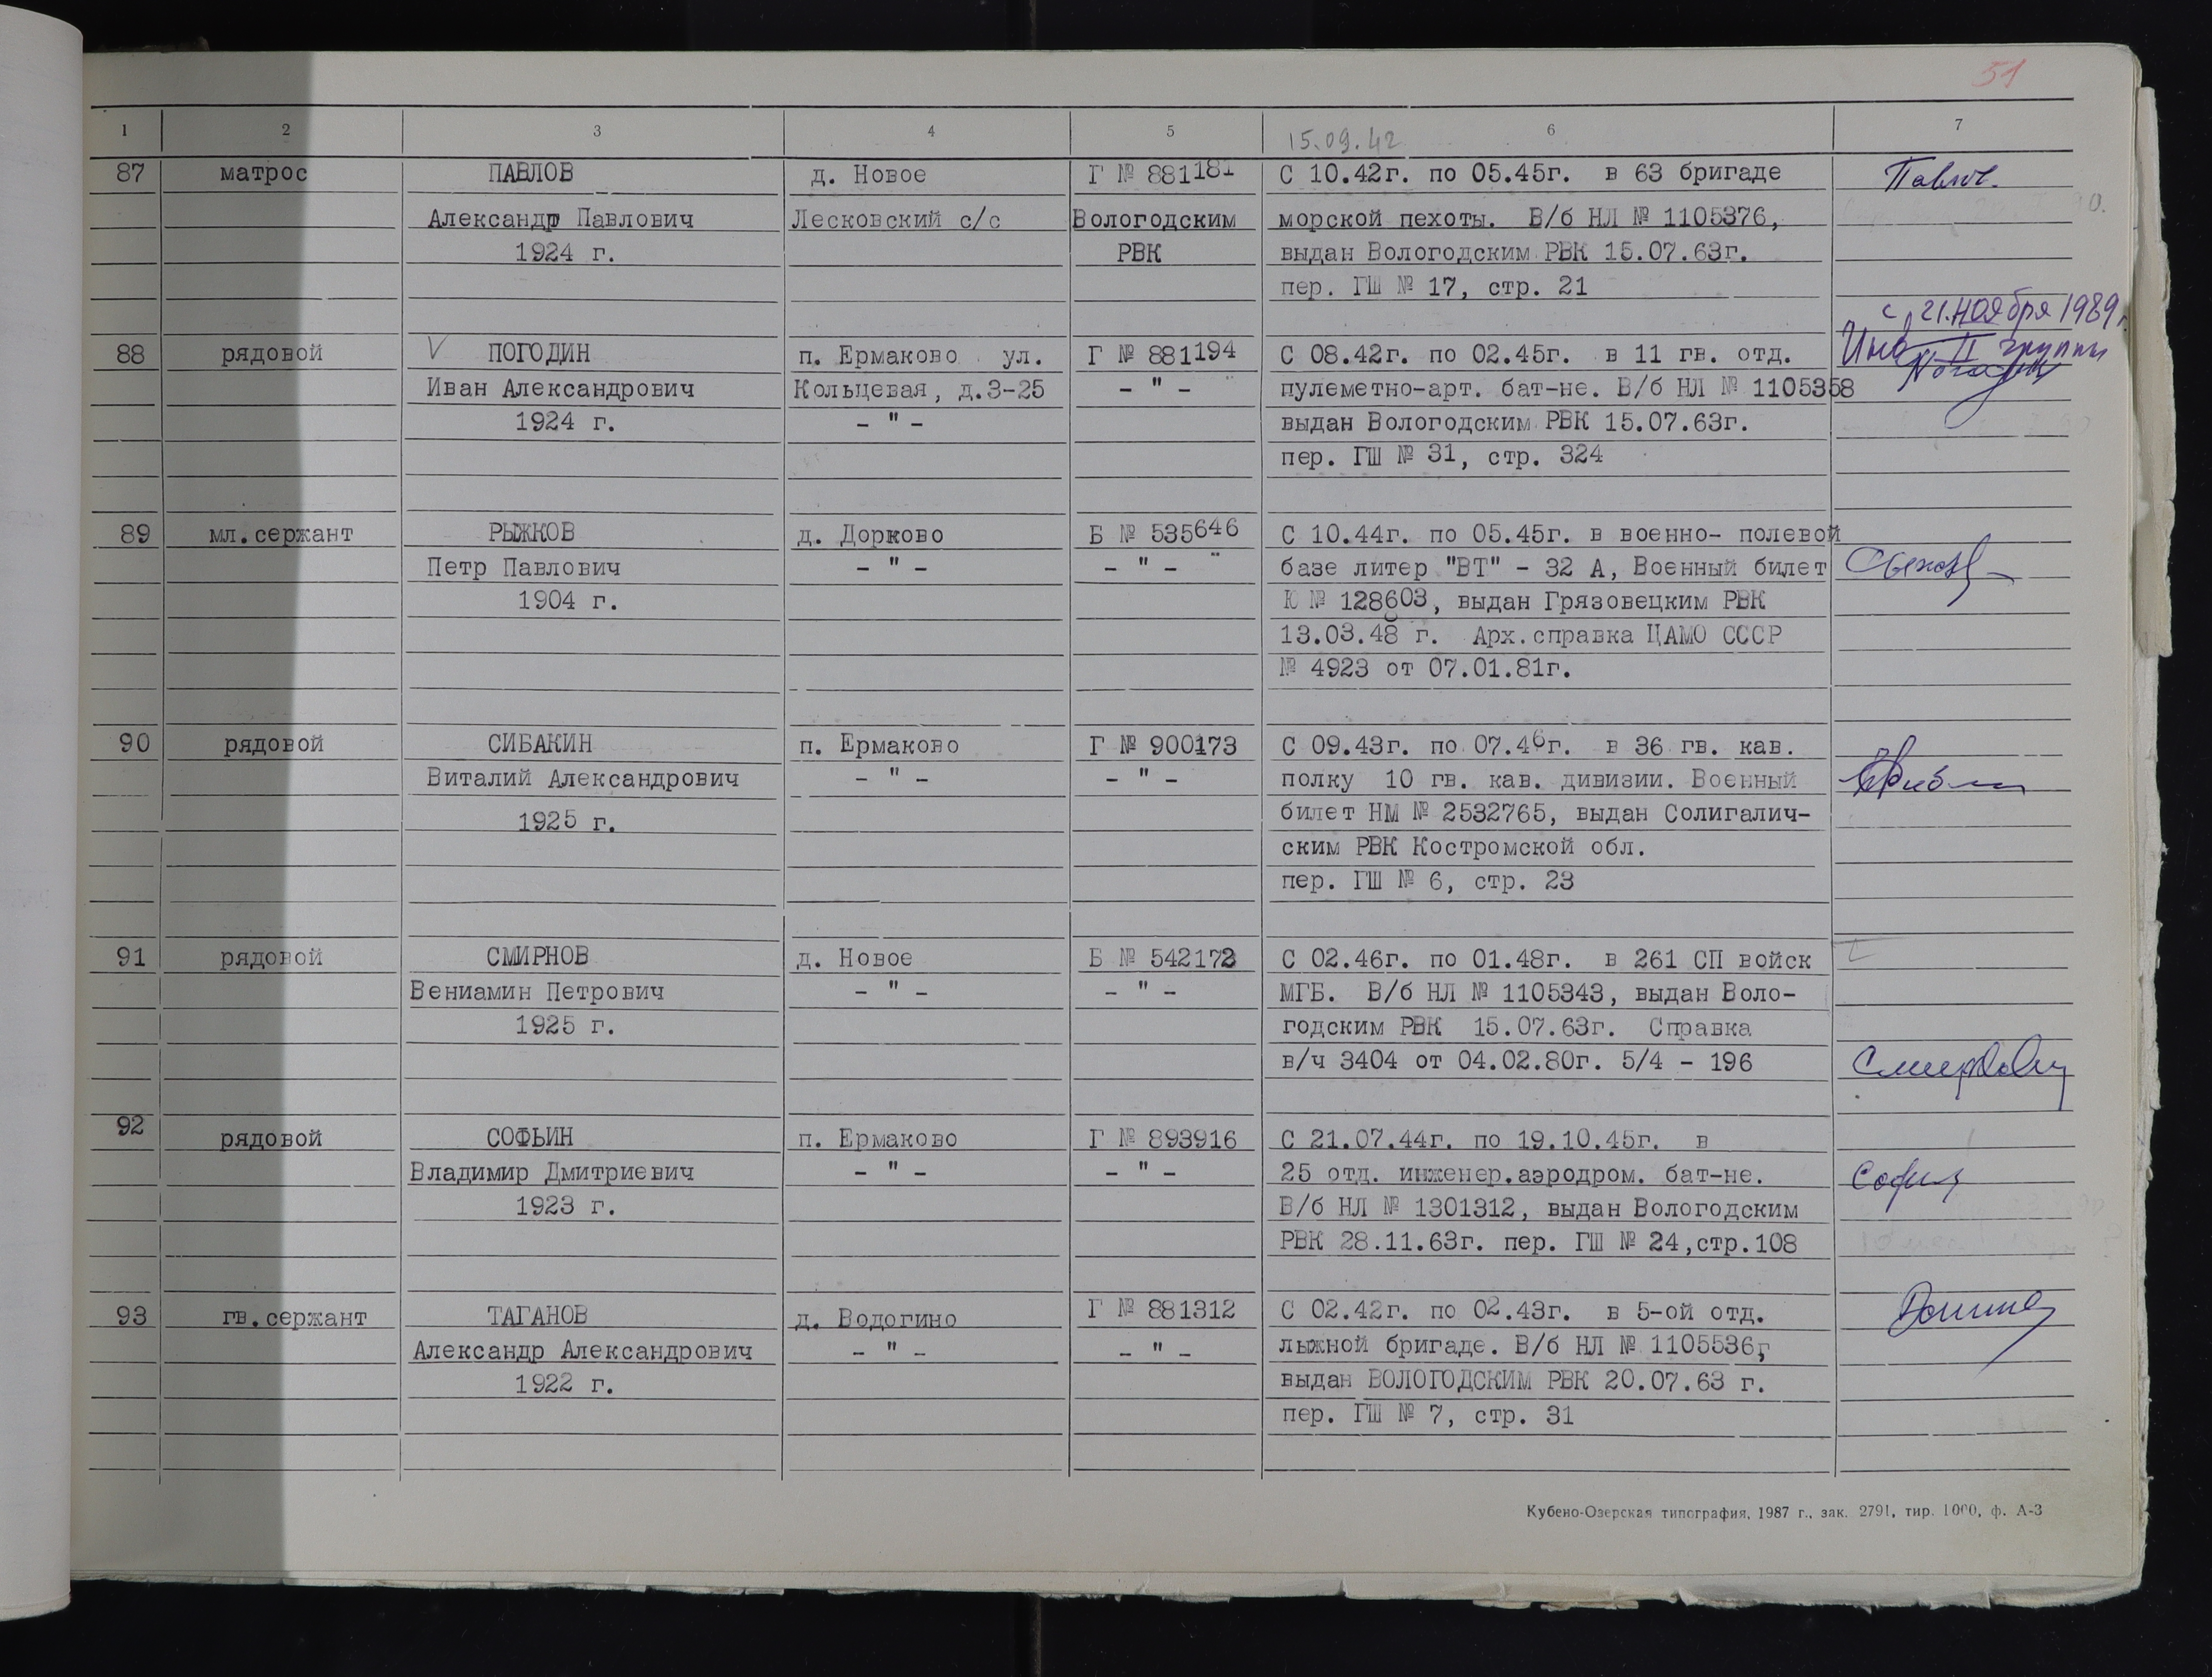 51
1 2 3 4 5 6 7
15.09.42
87 матрос ПАВЛОВ д. Новое Г № 881181 С 10.42г. по 05.45г. в 63 бригаде Павлов
Александр Павлович Лесковский с/с Вологодским морской пехоты. В/б НЛ № 1105376,
1924 г. РВК выдан Вологодским РВК 15.07.63г.
пер. ГШ № 17, стр. 21
с 21.ноября 1989г.
88 рядовой V ПОГОДИН п. Ермаково ул. Г № 881194 С 08.42г. по 02.45г. в 11 гв. отд. Инв. II группы
Иван Александрович Кольцевая, д.3-25 - " - пулеметно-арт. бат-не. В/б НЛ № 1105358
1924 г. - " - выдан Вологодским РВК 15.07.63г.
пер. ГШ № 31, стр. 324
89 мл.сержант РЫЖКОВ д. Дорково Б № 535646 С 10.44г. по 05.45г. в военно- полевой
Петр Павлович - " - - " - базе литер "ВТ" - 32 А, Военный билет
1904 г. Ю № 128603, выдан Грязовецким РВК
13.03.48 г. Арх.справка ЦАМО СССР
№ 4923 от 07.01.81г.
90 рядовой СИБАКИН п. Ермаково Г № 900173 С 09.43г. по 07.46г. в 36 гв. кав.
Виталий Александрович - " - - " - полку 10 гв. кав. дивизии. Военный
1925 г. билет НМ № 2532765, выдан Солигалич-
ским РВК Костромской обл.
пер. ГШ № 6, стр. 23
91 рядовой СМИРНОВ д. Новое Б № 542172 С 02.46г. по 01.48г. в 261 СП войск
Вениамин Петрович - " - - " - МГБ. В/б НЛ № 1105343, выдан Воло-
1925 г. годским РВК 15.07.63г. Справка
в/ч 3404 от 04.02.80г. 5/4 - 196
92 рядовой СОФЬИН п. Ермаково Г № 893916 С 21.07.44г. по 19.10.45г. в
Владимир Дмитриевич - " - - " - 25 отд. инженер.аэродром. бат-не.
1923 г. В/б НЛ № 1301312, выдан Вологодским
РВК 28.11.63г. пер. ГШ № 24,стр.108
93 гв.сержант ТАГАНОВ д. Водогино Г № 881312 С 02.42г. по 02.43г. в 5-ой отд.
Александр Александрович - " - - " - лыжной бригаде. В/б НЛ № 1105536,
1922 г. выдан ВОЛОГОДСКИМ РВК 20.07.63 г.
пер. ГШ № 7, стр. 31
Кубено-Озерская типография, 1987 г., зак. 2791, тир. 1000, ф. А-3